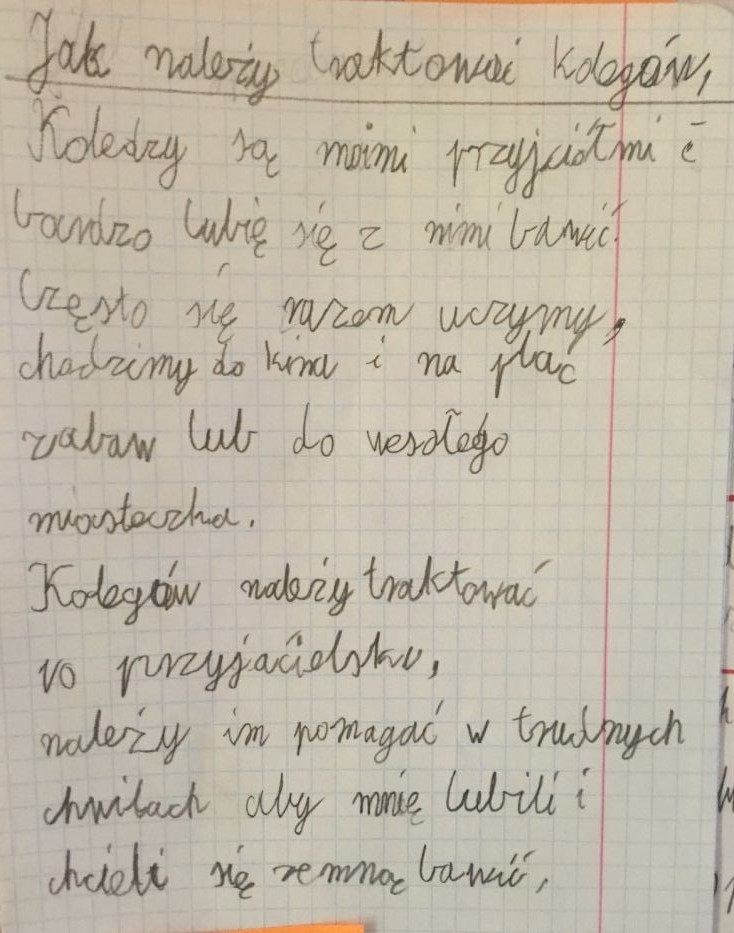 Jak należy traktować kolegów,
Koledzy są moimi przyjciółmi i
bardzo lubię się z nimi bawić.
Często się razem uczymy,
chodzimy do kina i na plac
zabaw lub do wesołego
miasteczka.
Kolegów należy traktować
po przyjacielsku,
należy im pomagać w trudnych
chwilach aby mnię lubili i
chcieli się zemną bawić,